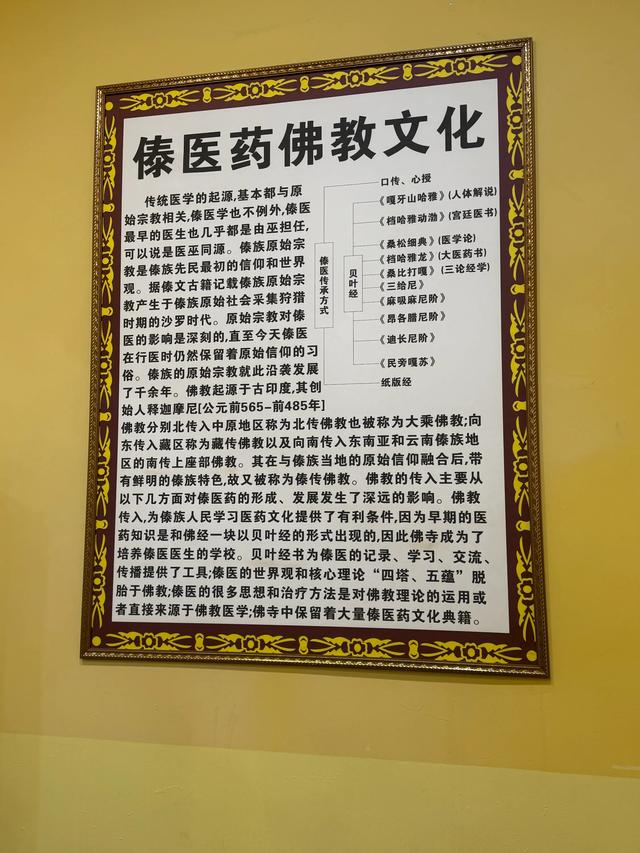 傣医药佛教文化
传统医学的起源,基本都与原
始宗教相关,傣医学也不例外,傣医
最早的医生也几乎都是由巫担任,
可以说是医巫同源。傣族原始宗
教是傣族先民最初的信仰和世界
观。据傣文古籍记载傣族原始宗
教产生于傣族原始社会采集狩猎
时期的沙罗时代。原始宗教对傣
医的影响是深刻的,直至今天傣医
在行医时仍然保留着原始信仰的习
俗。傣族的原始宗教就此沿袭发展
了千余年。佛教起源于古印度,其创
始人释迦摩尼[公元前565-前485年]
佛教分别北传入中原地区称为北传佛教也被称为大乘佛教;向
东传入藏区称为藏传佛教以及向南传入东南亚和云南傣族地
区的南传上座部佛教。其在与傣族当地的原始信仰融合后,带
有鲜明的傣族特色,故又被称为傣传佛教。佛教的传入主要从
以下几方面对傣医药的形成、发展发生了深远的影响。佛教
传入,为傣族人民学习医药文化提供了有利条件,因为早期的医
药知识是和佛经一块以贝叶经的形式出现的,因此佛寺成为了
培养傣医医生的学校。贝叶经书为傣医的记录、学习、交流、
传播提供了工具;傣医的世界观和核心理论“四塔、五蕴”脱
胎于佛教;傣医的很多思想和治疗方法是对佛教理论的运用或
者直接来源于佛教医学;佛寺中保留着大量傣医药文化典籍。
傣医传承方式
口传、心授
贝叶经
《嘎牙山哈雅》(人体解说)
《档哈雅动渤》(宫廷医书)
《桑松细典》(医学论)
《档哈雅龙》(大医药书)
《桑比打嘎》(三论经学)
《三给尼》
《麻吸麻尼阶》
《昂各腊尼阶》
《迪长尼阶》
《民旁嘎苏》
纸版经